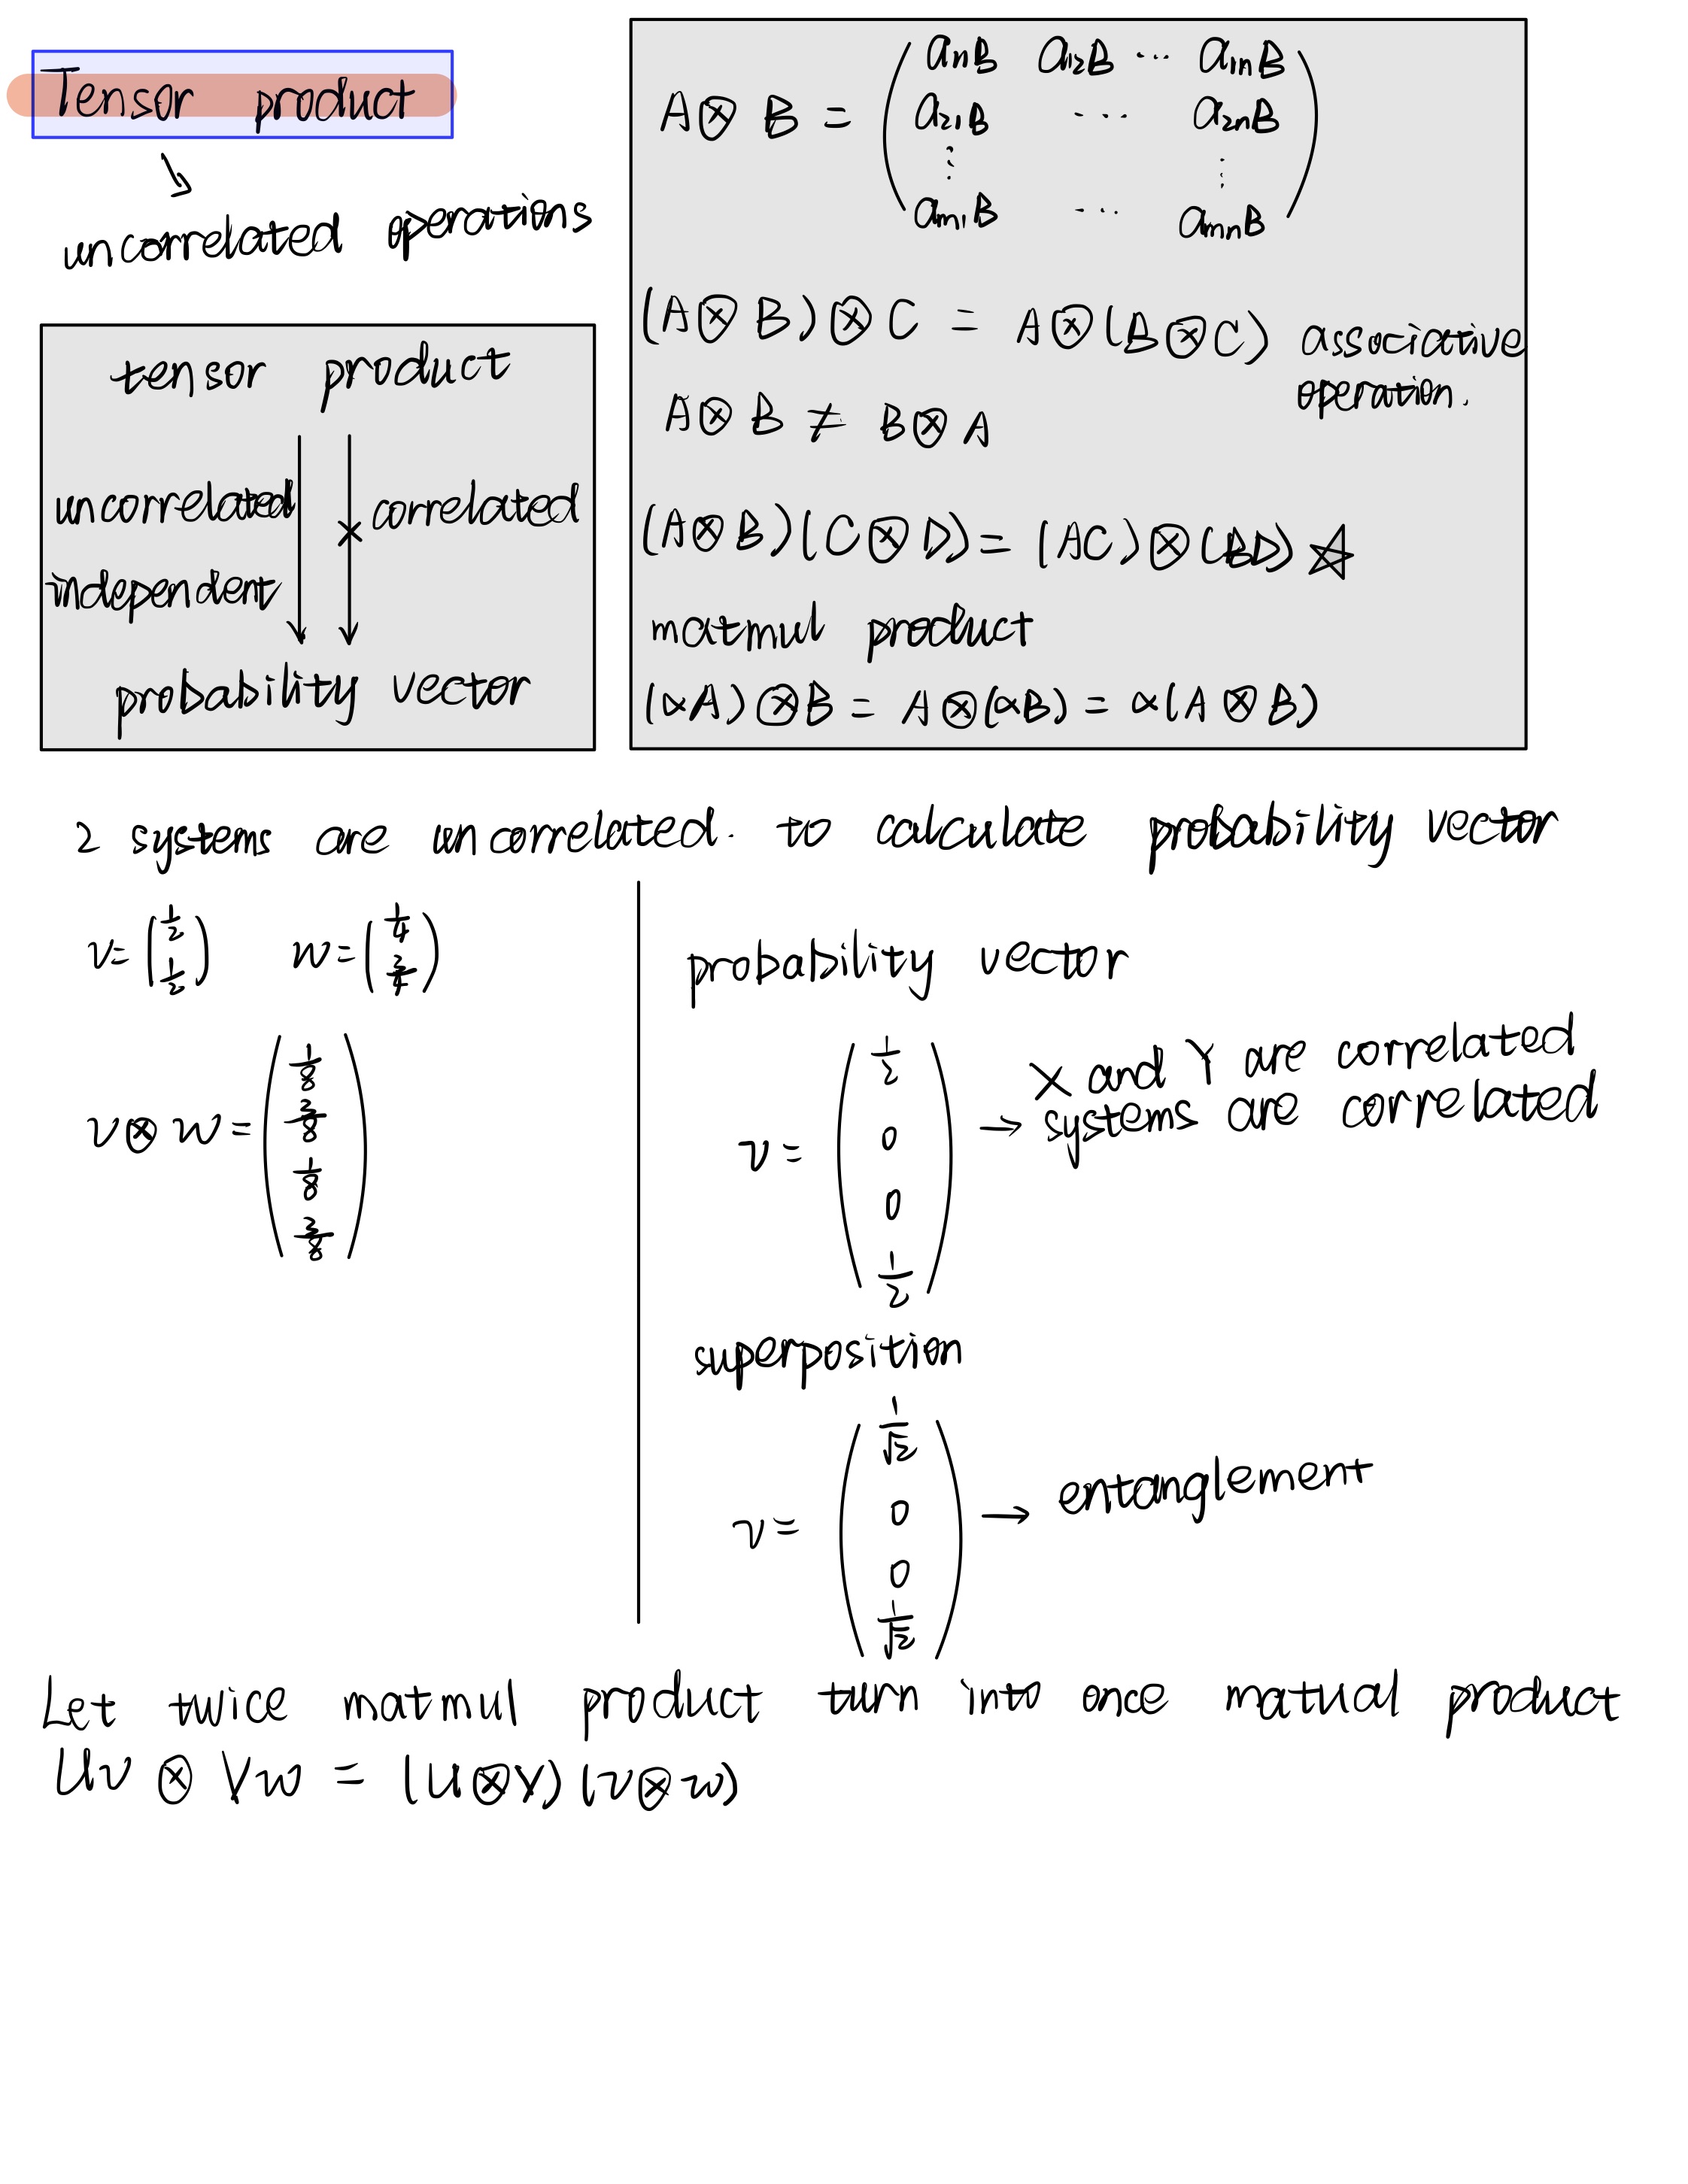 Tensor product
uncorrelated operations
tensor product
uncorrelated
correlated
independent
probability vector
A⊗B = (a₁₁B a₁₂B ⋯ a₁ₙB
a₂₁B ⋯ a₂ₙB
⋮ ⋮
aₘ₁B ⋯ aₘₙB)
(A⊗B)⊗C = A⊗(B⊗C) associative
operation.
A⊗B ≠ B⊗A
(A⊗B)(C⊗D) = (AC)⊗(BD) ☆
matmul product
(αA)⊗B = A⊗(αB) = α(A⊗B)
2 systems are uncorrelated. to calculate probability vector
v = (1/2 1/2) w = (1/4 3/4)
v⊗w = (1/8 3/8 1/8 3/8)
probability vector
v = (1/2 0 0 1/2)
X and Y are correlated
→ systems are correlated
superposition
v = (1/√2 0 0 1/√2) → entanglement
Let twice matmul product turn into once matual product
Uv ⊗ Vw = (U⊗V)(v⊗w)